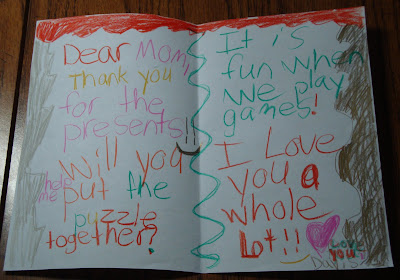 Dear Mom,
Thank you
for the
presents!!
Will you
help me
put the
puzzle
together?
It is
fun when
we play
games!
I Love
you a
whole
Lot!!
LOVE
YOU